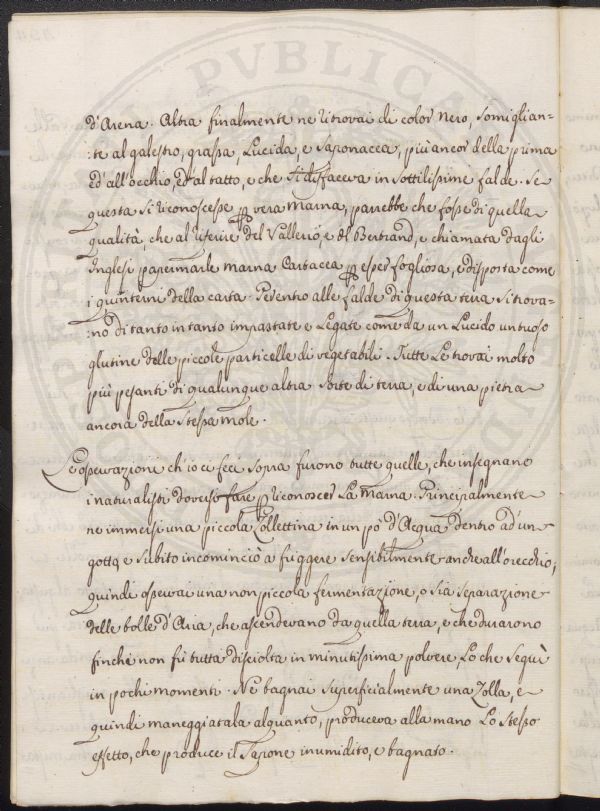 d'Arena. Altra finalmente ne ritrovai di color nero, somiglian=
=te al galestro, grassa, Lucida, e Saponacea, più ancor della prima
ed all'occhio, ed al tatto, e che si disfaceva in sottilissime falde. Se
questa si riconoscesse p vera Marna, parrebbe che fosse di quella
qualità, che al riferire del Vallerio, e del Bertrand, e chiamata dagli
Inglesi papermarle marna Cartacea p esser fogliosa, e disposta come
i quinterni della carta. Perentro alle falde di questa terra si trova=
=no di tanto in tanto impastate e Legate come da un Lucido untuoso
glutine delle piccole particelle di vegetabili. Tutte Le trovai molto
più pesanti di qualunque altra sorte di terra, e di una pietra
ancora della stessa mole.
Le osservazione ch'io ci feci sopra furono tutte quelle, che insegnano
i naturalisti doversi fare p riconoscer La Marna. Principalmente
ne immersi una piccola Zollettina in un pò d'Acqua dentro ad un
gotto, e subito incominciò a friggere sensibilmente anche all'orecchio,
quindi osservai una non piccola fermentazione, o sia separazione
delle bolle d'Aria, che ascendevano da quella terra, e che durarono
finchè non fù tutta disciolta in minutissima polvere, Lo che seguì
in pochi momenti. Ne bagnai superficialmente una Zolla, e
quindi maneggiatala alquanto, produceva alla mano Lo stesso
effetto, che produce il Sapone inumidito, e bagnato.
PVBLICA